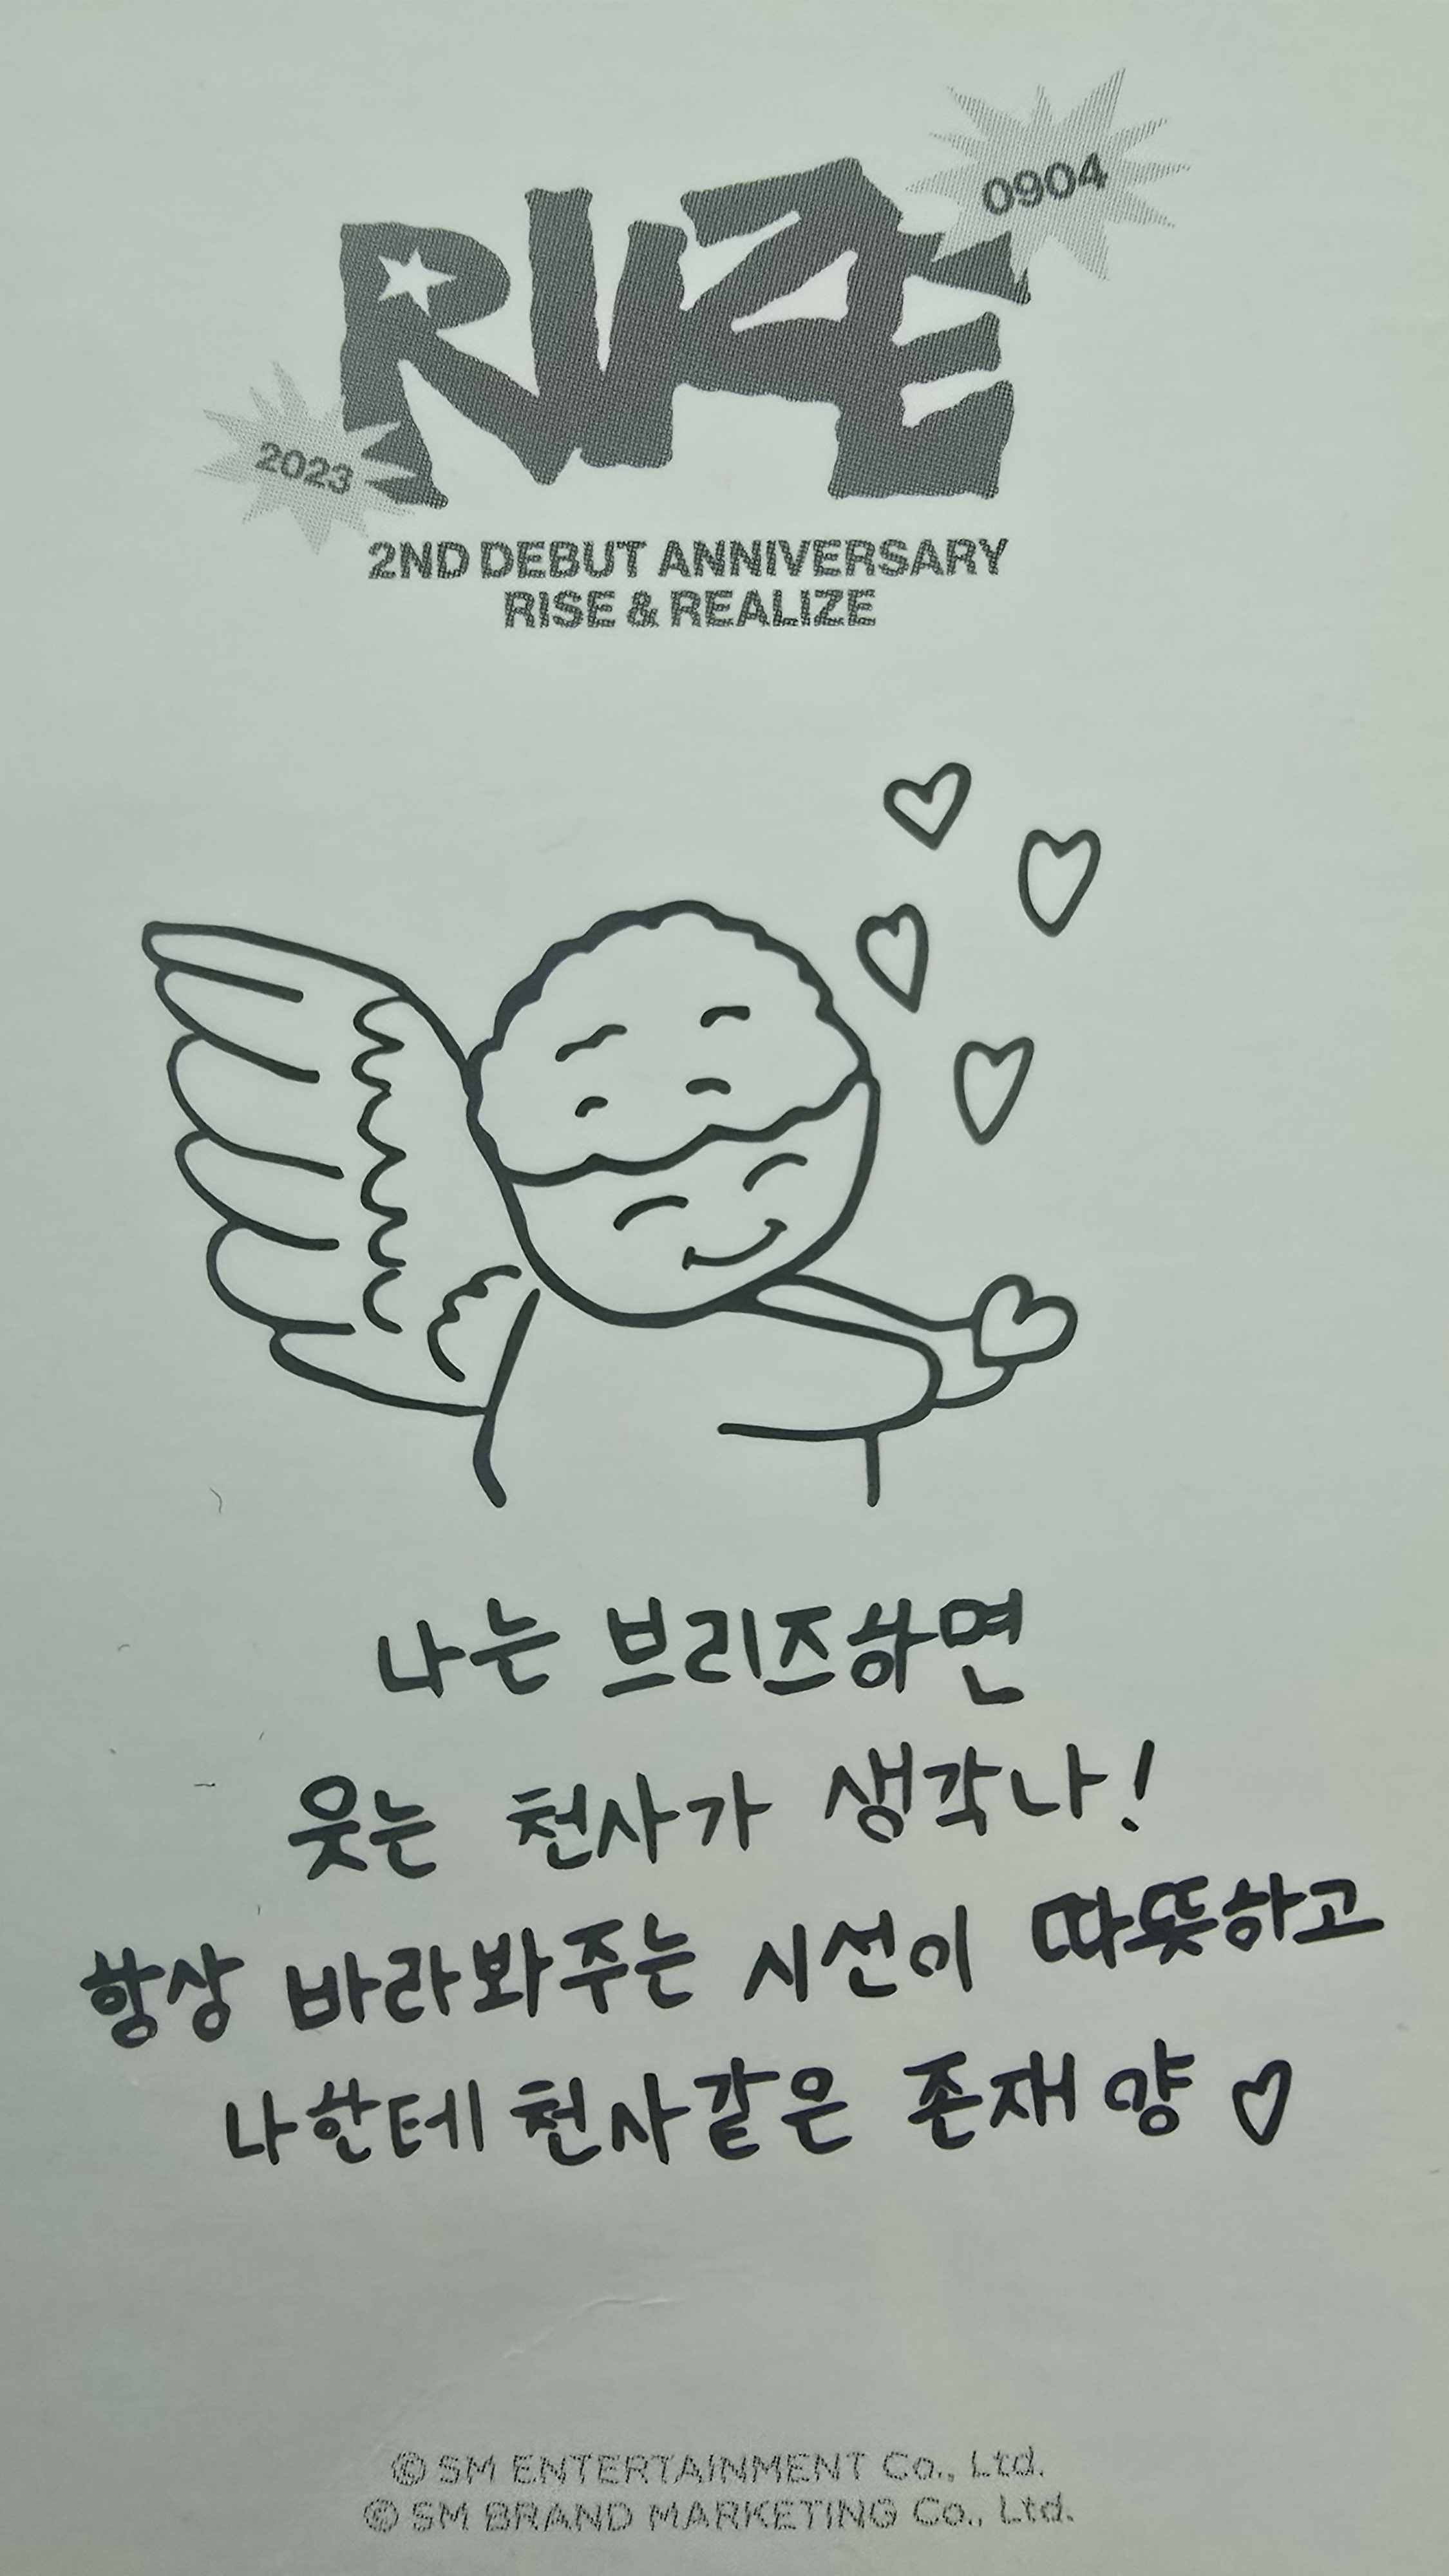 0904
RIIZE
2023
2ND DEBUT ANNIVERSARY
RISE & REALIZE
나는 브리즈하면
웃는 천사가 생각나!
항상 바라봐주는 시선이 따뜻하고
나한테 천사같은 존재 양 ♡
© SM ENTERTAINMENT Co., Ltd.
© SM BRAND MARKETING Co., Ltd.